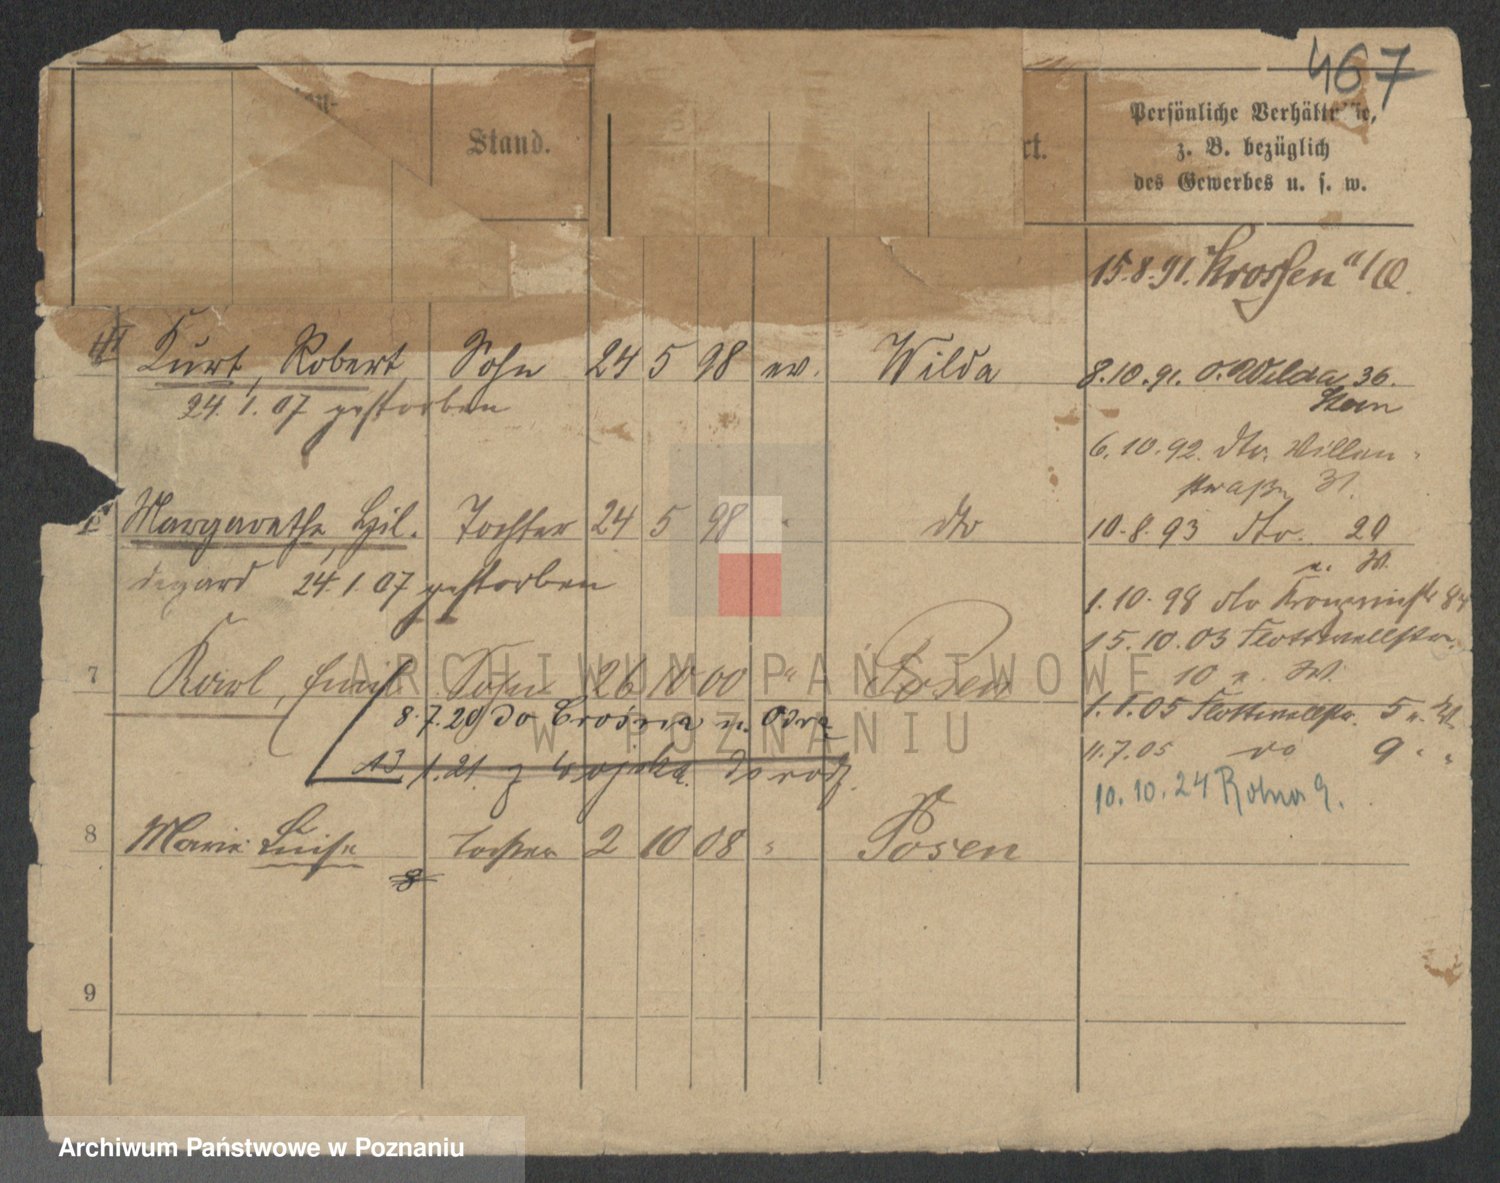 467
Stand.
Persönliche Verhältnisse,
z. B. bezüglich
des Gewerbes u. s. w.
15.8.91. Krossen a/O.
Kurt, Robert Sohn 24 5 98 ev. Wilda
24.1.07 gestorben
8.10.91. O. Wilda 36.
6.10.92. dto. Villen-
straße
Margarethe, Hil- Tochter 24 5 98 " dto
degard 24.1.07 gestorben
10.8.93 dto. 20
1.10.98 dto Kronprinzstr 84
15.10.03 Flottwellstr.
10
7 Karl, Emil Sohn 26 10 00 " Posen
8.7.20 do Crosna n. Odrą
13.1.21. z wojska do rodz.
1.1.05 Flottwellstr. 5
11.7.05 do 9 " "
10.10.24 Rolna 9.
8 Marie Luise Tochter 2 10 08 " Posen
8
9
ARCHIWUM PAŃSTWOWE
W POZNANIU
Archiwum Państwowe w Poznaniu